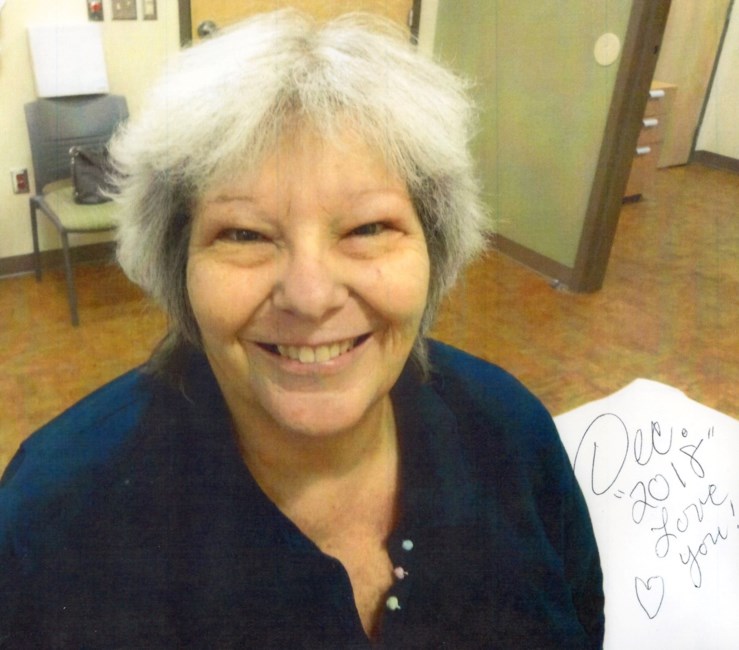 Dec.
"2018"
Love
you!
♡